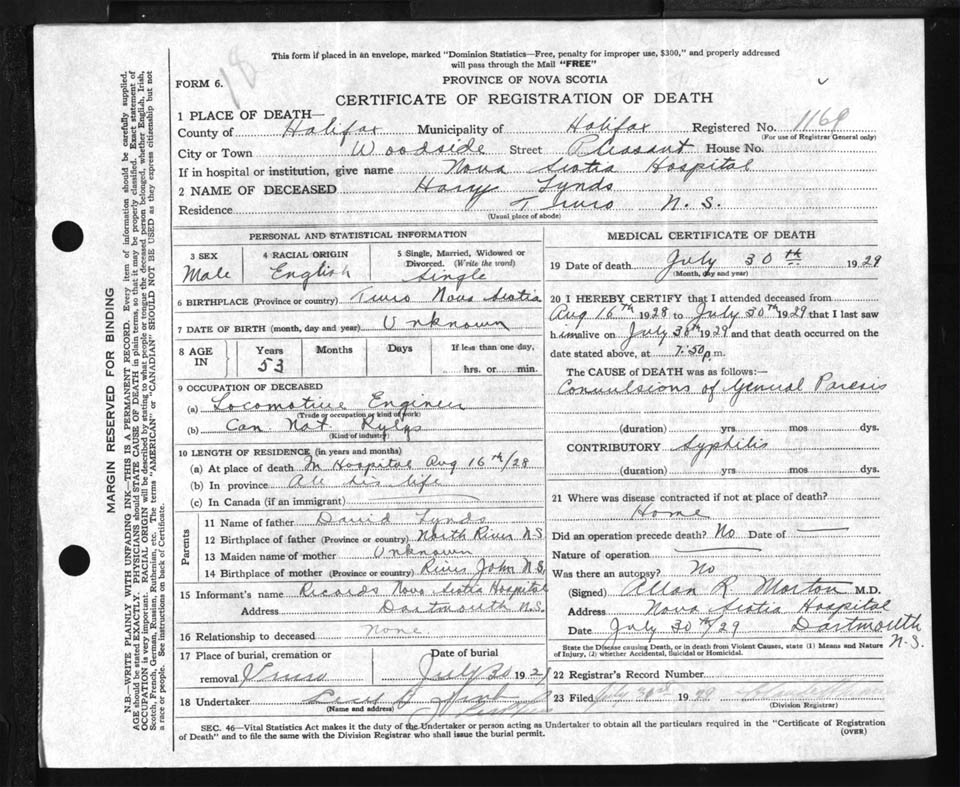 18
This form if placed in an envelope, marked "Dominion Statistics—Free, penalty for improper use, $300," and properly addressed
will pass through the Mail "FREE"
FORM 6.
PROVINCE OF NOVA SCOTIA
CERTIFICATE OF REGISTRATION OF DEATH
1 PLACE OF DEATH—
County of Halifax Municipality of Halifax Registered No. 1169
(For use of Registrar General only)
City or Town Woodside Street Pleasant House No.
If in hospital or institution, give name Nova Scotia Hospital
2 NAME OF DECEASED Harry Lynds
Residence Truro N.S.
(Usual place of abode)
PERSONAL AND STATISTICAL INFORMATION
3 SEX Male
4 RACIAL ORIGIN English
5 Single, Married, Widowed or Divorced. (Write the word) Single
6 BIRTHPLACE (Province or country) Truro Nova Scotia
7 DATE OF BIRTH (month, day and year) Unknown
8 AGE IN Years 53 Months Days If less than one day, hrs. or min.
9 OCCUPATION OF DECEASED
(a) Locomotive Engineer
(Trade or occupation or kind of work)
(b) Can. Nat. Rylys
(Kind of industry)
10 LENGTH OF RESIDENCE (in years and months)
(a) At place of death In Hospital Aug 16th/28
(b) In province All his life
(c) In Canada (if an immigrant)
Parents
11 Name of father David Lynds
12 Birthplace of father (Province or country) North River N.S
13 Maiden name of mother Unknown
14 Birthplace of mother (Province or country) River John N.S,
15 Informant's name Records Nova Scotia Hospital
Address Dartmouth N.S.
16 Relationship to deceased none.
17 Place of burial, cremation or removal Truro
Date of burial July 30 1929
18 Undertaker
(Name and address)
MEDICAL CERTIFICATE OF DEATH
19 Date of death July 30th 1929
(Month, day and year)
20 I HEREBY CERTIFY that I attended deceased from
Aug 16th 1928 to July 30th 1929 that I last saw
him alive on July 30th 1929 and that death occurred on the
date stated above, at 7:50 p.m.
The CAUSE OF DEATH was as follows:—
Convulsions of General Paresis
(duration) yrs mos dys.
CONTRIBUTORY Syphilis
(duration) yrs mos dys.
21 Where was disease contracted if not at place of death?
Home
Did an operation precede death? No Date of
Nature of operation
Was there an autopsy? No
(Signed) Allan R Morton M.D.
Address Nova Scotia Hospital
Date July 30th/29 Dartmouth N.S.
State the Disease causing Death, or in death from Violent Causes, state (1) Means and Nature
of Injury, (2) whether Accidental, Suicidal or Homicidal.
22 Registrar's Record Number
23 Filed July 31st 1929
(Division Registrar)
SEC. 46—Vital Statistics Act makes it the duty of the Undertaker or person acting as Undertaker to obtain all the particulars required in the "Certificate of Registration
of Death" and to file the same with the Division Registrar who shall issue the burial permit.
(OVER)
MARGIN RESERVED FOR BINDING
N.B.—WRITE PLAINLY WITH UNFADING INK—THIS IS A PERMANENT RECORD. Every item of information should be carefully supplied.
AGE should be stated EXACTLY. PHYSICIANS should STATE CAUSE OF DEATH in plain terms, so that it may be properly classified. Exact statement of
OCCUPATION is very important. RACIAL ORIGIN will be described by stating to what people or tongue the deceased person belonged, whether English, Irish,
Scotch, French, German, Russian, Ruthenian, etc. The terms "AMERICAN" or "CANADIAN" SHOULD NOT BE USED as they express citizenship but not
a race or people. See instructions on back of Certificate.